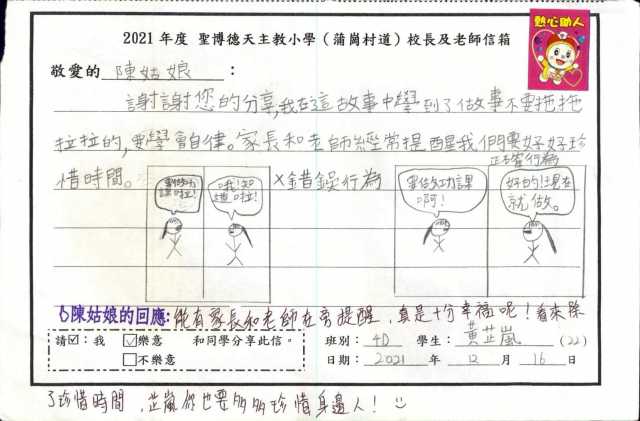 熱心助人
2021 年度 聖博德天主教小學（蒲崗村道）校長及老師信箱
敬愛的 陳姑娘 ：
謝謝您的分享,我在這故事中學到了做事不要拖拖
拉拉的,要學會自律。家長和老師經常提醒我們要好好珍
惜時間。
要做功課啦!
哦!知道啦!
×錯誤行為
正確行為
要做功課啊!
好的!現在就做。
陳姑娘的回應:能有家長和老師在旁提醒，真是十分幸福呢！看來除
請☑：我 ☑樂意 和同學分享此信。
□不樂意
班別： 4D 學生： 黃芷嵐 (22)
日期： 2021 年 12 月 16 日
了珍惜時間，芷嵐你也要多多珍惜身邊人！